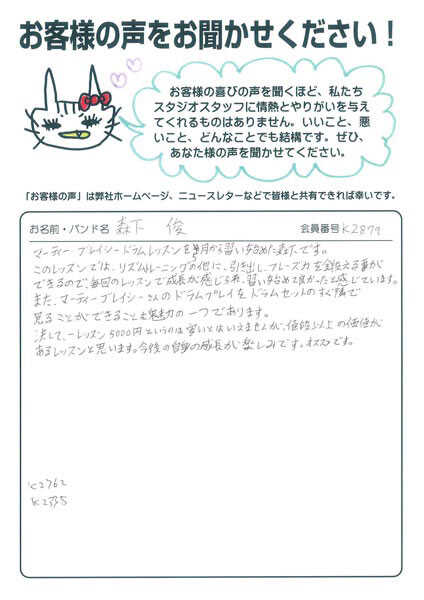 お客様の声をお聞かせください！
お客様の喜びの声を聞くほど、私たち
スタジオスタッフに情熱とやりがいを与え
てくれるものはありません。いいこと、悪
いこと、どんなことでも結構です。ぜひ、
あなた様の声を聞かせてください。
「お客様の声」は弊社ホームページ、ニュースレターなどで皆様と共有できれば幸いです。
お名前・バンド名 森下 俊 会員番号 K2879
マーティー ブレイシードラムレッスンを 月から習い始めた森下です。
このレッスンでは、リズムトレーニングの他に、引き出し、フレーズ力を鍛える事が
できるので、毎回のレッスンで成長が感じられ、習い始めて良かったと感じています。
また、マーティーブレイシーさんのドラムプレイをドラムセットのすぐ隣で
見ることができることも魅力の一つであります。
決して、一レッスン5000円というのは安いとはいえませんが、値段以上の価値が
あるレッスンと思います。今後の自身の成長が楽しみです。オススメです。
K2762